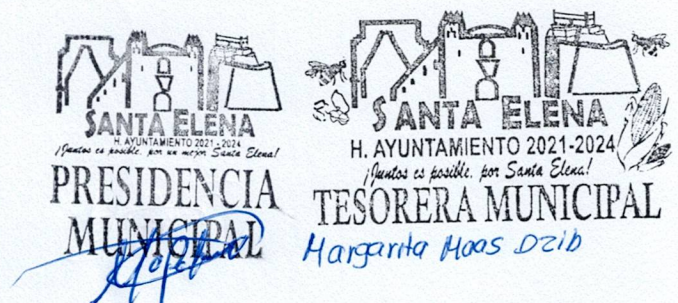 SANTA ELENA
H. AYUNTAMIENTO 2021-2024
¡Juntos es posible, por un mejor Santa Elena!
PRESIDENCIA
MUNICIPAL
SANTA ELENA
H. AYUNTAMIENTO 2021-2024
¡Juntos es posible, por Santa Elena!
TESORERA MUNICIPAL
Margarita Moas Dzib